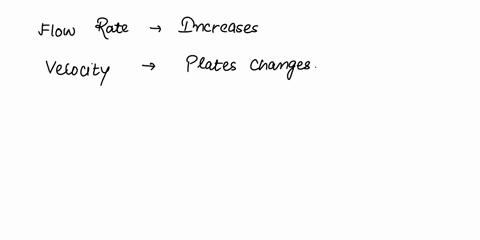 Flow Rate → Increases
Velocity → Plates Changes.